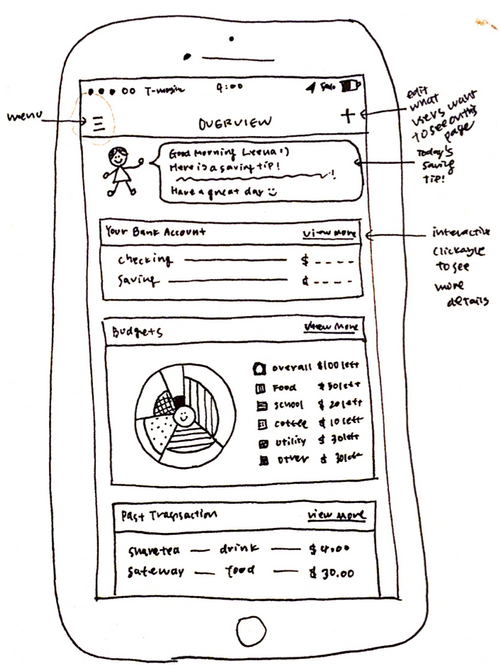 T-mobile 9:00
OVERVIEW
+
menu
edit
what
users want
to see on this
page
Good Morning Leena :)
Here is a saving tip!
Have a great day
Today's
saving
tip!
Your Bank Account View More
checking $ -----
saving $ -----
interactive
clickable
to see
more
details
Budgets View More
overall $100 left
Food $30 left
school $20 left
coffee $10 left
utility $30 left
other $30 left
Past Transaction View More
sharetea — drink — $4.00
Safeway — food — $30.00